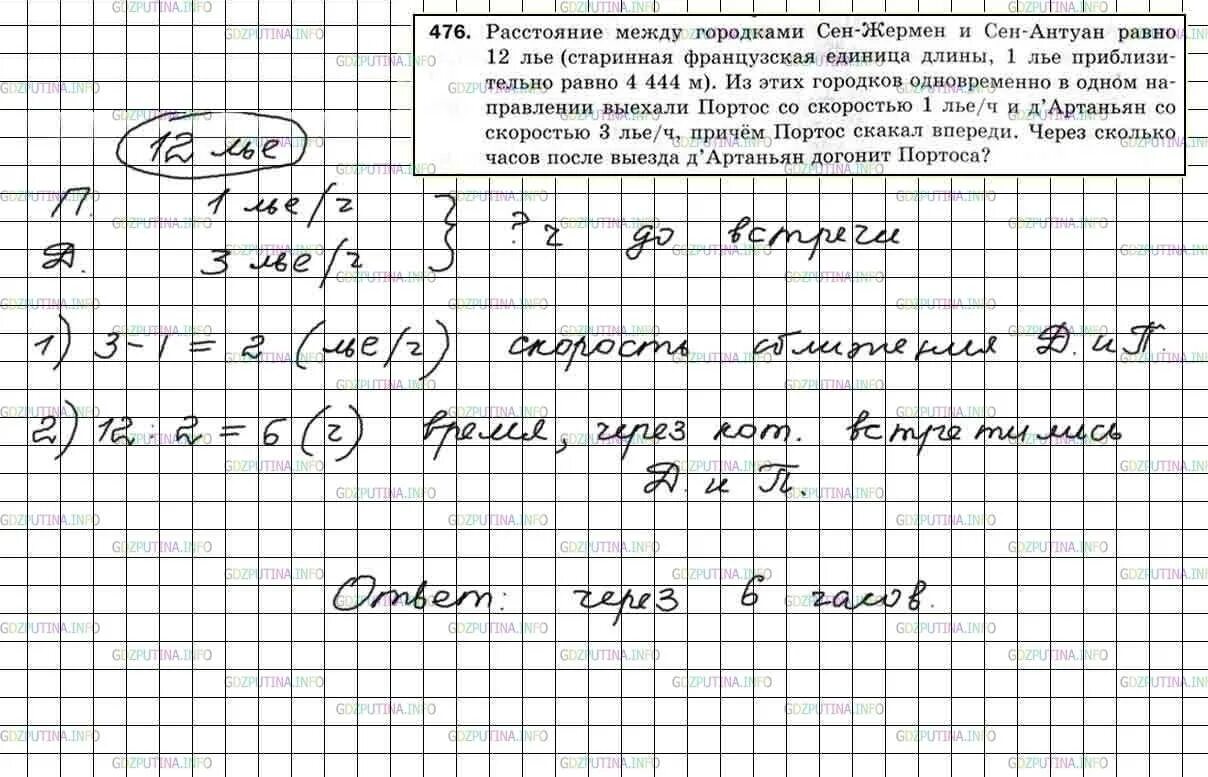 476. Расстояние между городками Сен-Жермен и Сен-Антуан равно
12 лье (старинная французская единица длины, 1 лье приблизи-
тельно равно 4 444 м). Из этих городков одновременно в одном на-
правлении выехали Портос со скоростью 1 лье/ч и д'Артаньян со
скоростью 3 лье/ч, причём Портос скакал впереди. Через сколько
часов после выезда д'Артаньян догонит Портоса?
12 лье
П. 1 лье/ч
Д. 3 лье/ч
? ч до встречи
1) 3 - 1 = 2 (лье/ч) скорость сближения Д. и П.
2) 12 : 2 = 6 (ч) время, через кот. встретились
Д. и П.
Ответ: через 6 часов.
GDZPUTINA.INFO